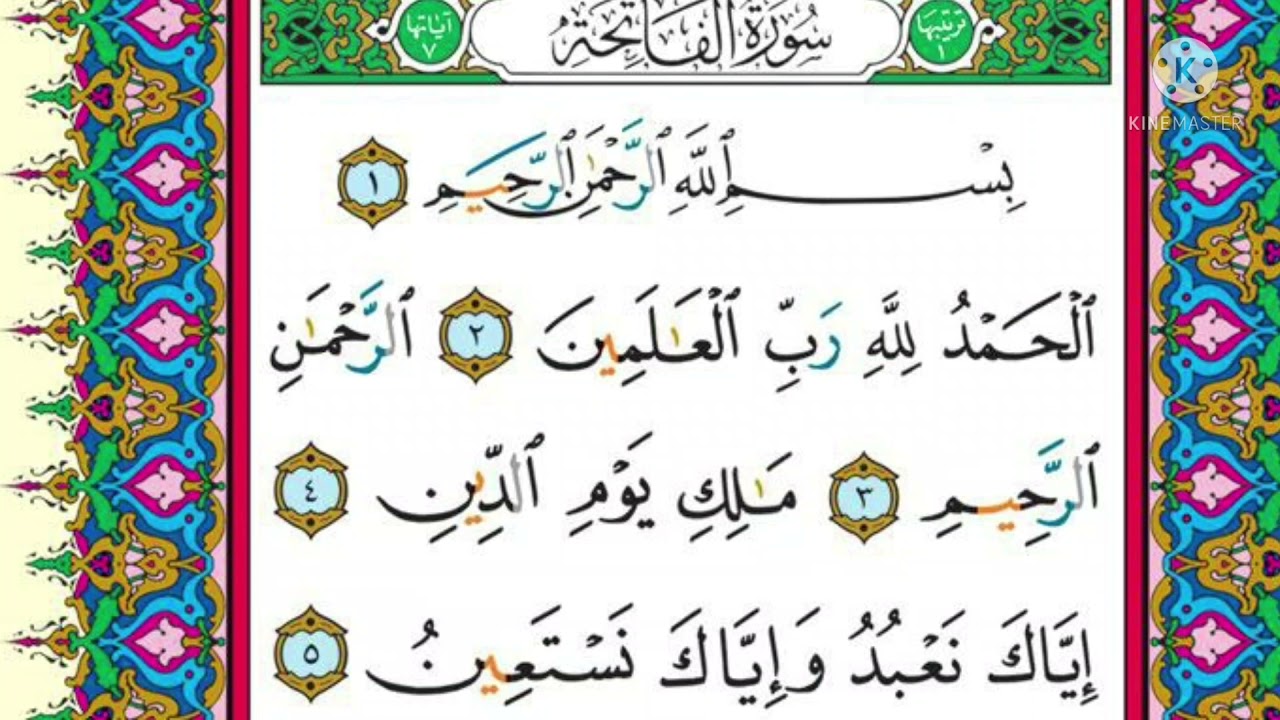 ترتيبها ١ سُورَةُ الفَاتِحَةِ آياتها ٧
K
KINEMASTER
بِسْمِ ٱللَّهِ ٱلرَّحْمَٰنِ ٱلرَّحِيمِ ١
ٱلْحَمْدُ لِلَّهِ رَبِّ ٱلْعَٰلَمِينَ ٢ ٱلرَّحْمَٰنِ
ٱلرَّحِيمِ ٣ مَٰلِكِ يَوْمِ ٱلدِّينِ ٤
إِيَّاكَ نَعْبُدُ وَإِيَّاكَ نَسْتَعِينُ ٥